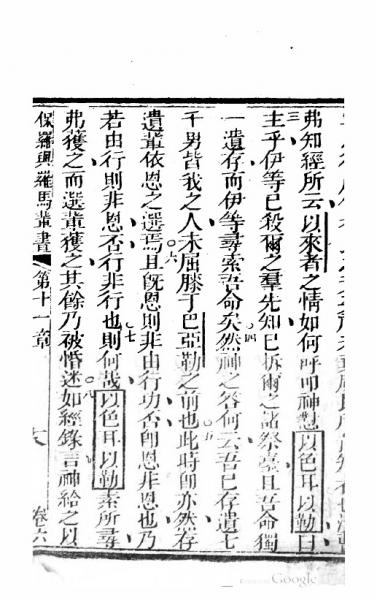 弗知經所云以來者之情如何呼叩神懟以色耳以勒曰
三主乎伊等已殺爾之羣先知已拆爾之諸祭臺且吾命獨
一遺存而伊等尋索吾命矣四然神之答何云吾已存遺七
千男皆我之人未屈膝于巴亞勒之前也五此時卽亦然存
遺輩依恩之選焉六且旣恩則非由行功否卽恩非恩也乃
若由行則非恩否行非行也七則何哉以色耳以勒素所尋
弗獲之而選輩獲之其餘乃被惛迷八如經錄言神給之以
保羅與羅馬輩書 第十一章 六 卷六
Google